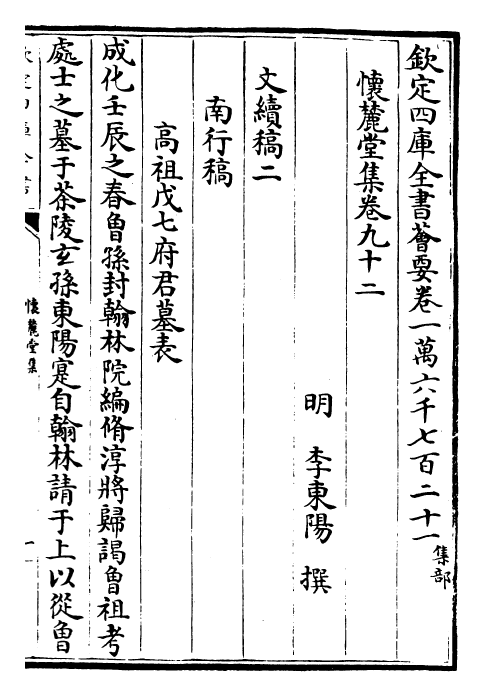 欽定四庫全書薈要卷一萬六千七百二十一 集部
懷麓堂集卷九十二
明 李東陽 撰
文續稿二
南行稿
高祖戊七府君墓表
成化壬辰之春曾孫封翰林院編脩淳將歸謁曾祖考
處士之墓于茶陵玄孫東陽寔自翰林請于上以從曾
懷麓堂集
一